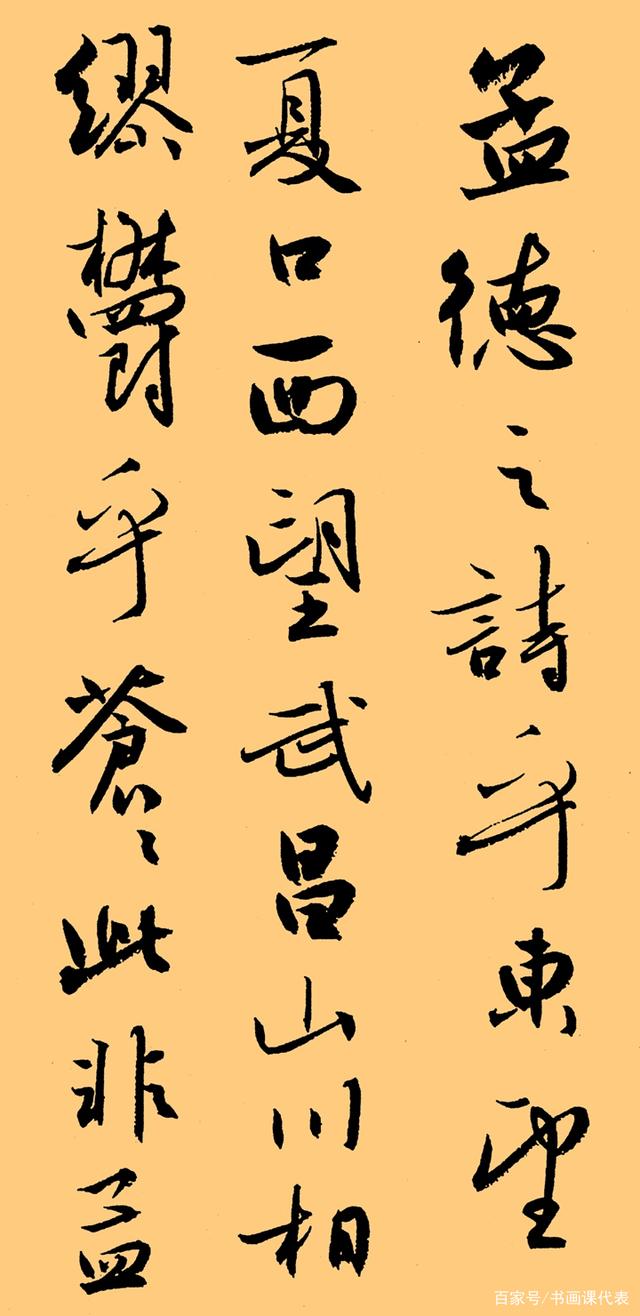 孟德之詩乎東望
夏口西望武昌山川相
繆欝乎蒼々此非孟
百家号/书画课代表